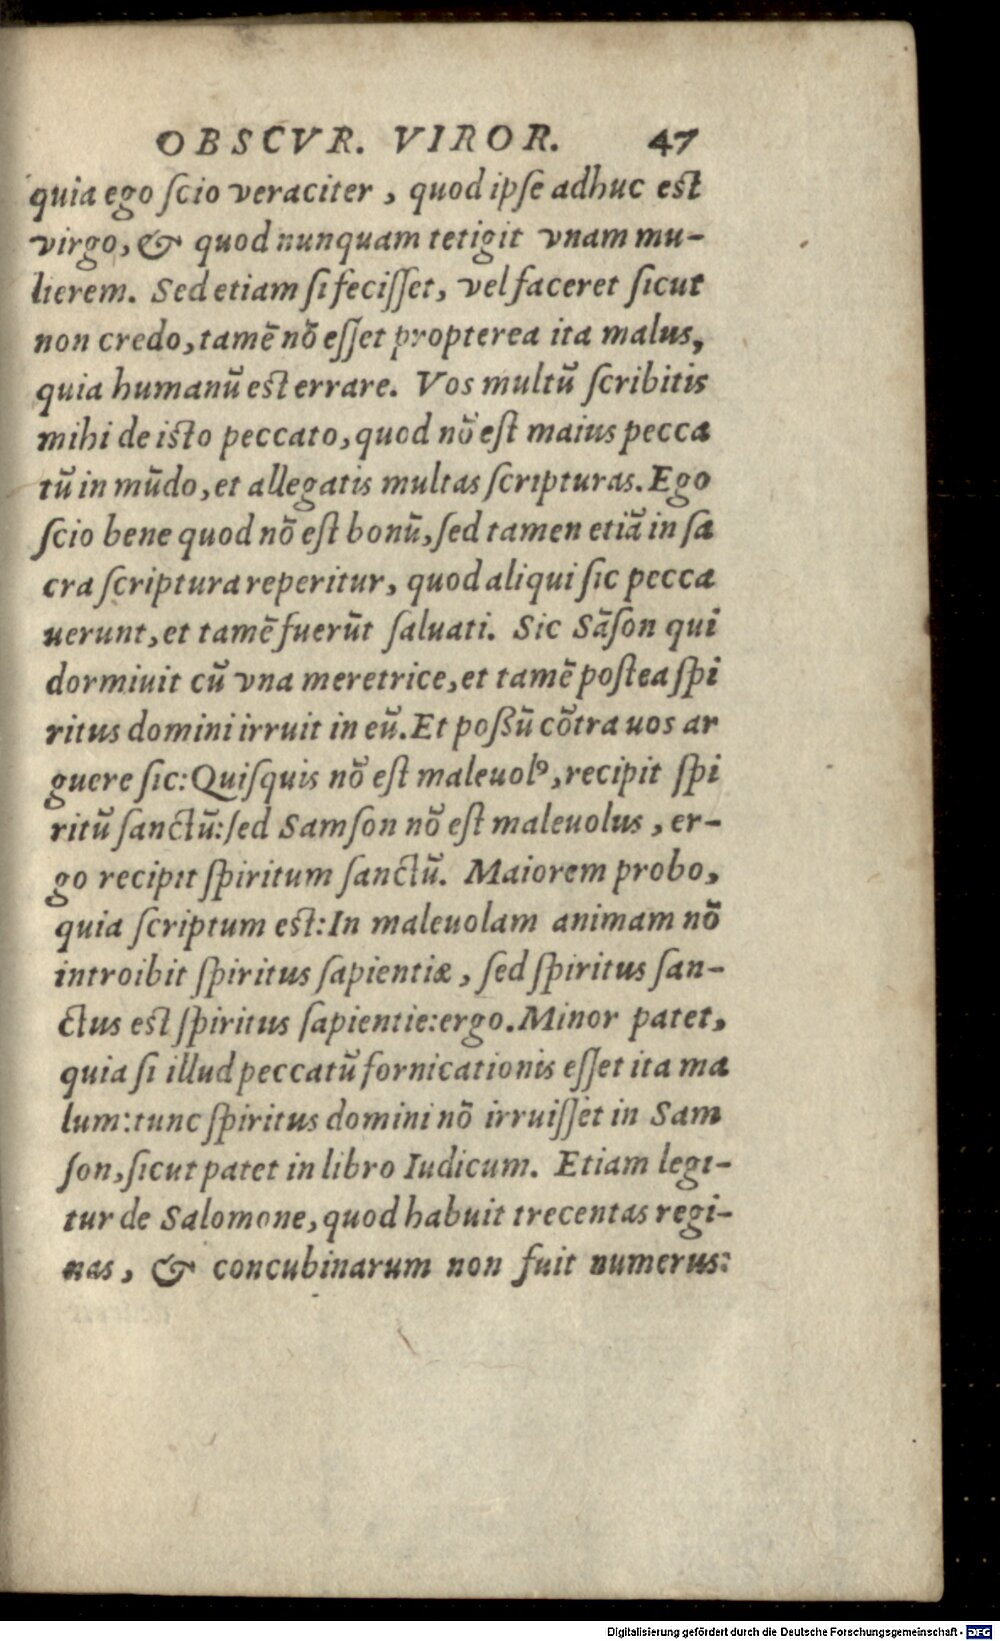 OBSCVR. VIROR. 47
quia ego ſcio veraciter, quod ipſe adhuc eſt
virgo, & quod nunquam tetigit vnam mu-
lierem. Sed etiam ſi feciſſet, vel faceret ſicut
non credo, tamē nō eſſet propterea ita malus,
quia humanū eſt errare. Vos multū ſcribitis
mihi de iſto peccato, quod nō eſt maius pecca
tū in mūdo, et allegatis multas ſcripturas. Ego
ſcio bene quod nō eſt bonū, ſed tamen etiā in ſa
cra ſcriptura reperitur, quod aliqui ſic pecca
uerunt, et tamē fuerūt ſaluati. Sic Sāſon qui
dormiuit cū vna meretrice, et tamē poſtea ſpi
ritus domini irruit in eū. Et poßū cōtra uos ar
guere ſic: Quiſquis nō eſt maleuolꝰ, recipit ſpi
ritū ſanctū: ſed Samſon nō eſt maleuolus, er-
go recipit ſpiritum ſanctū. Maiorem probo,
quia ſcriptum eſt: In maleuolam animam nō
introibit ſpiritus ſapientiæ, ſed ſpiritus ſan-
ctus eſt ſpiritus ſapientie: ergo. Minor patet,
quia ſi illud peccatū fornicationis eſſet ita ma
lum: tunc ſpiritus domini nō irruiſſet in Sam
ſon, ſicut patet in libro Iudicum. Etiam legi-
tur de Salomone, quod habuit trecentas regi-
nas, & concubinarum non fuit numerus:
Digitalisierung gefördert durch die Deutsche Forschungsgemeinschaft - DFG